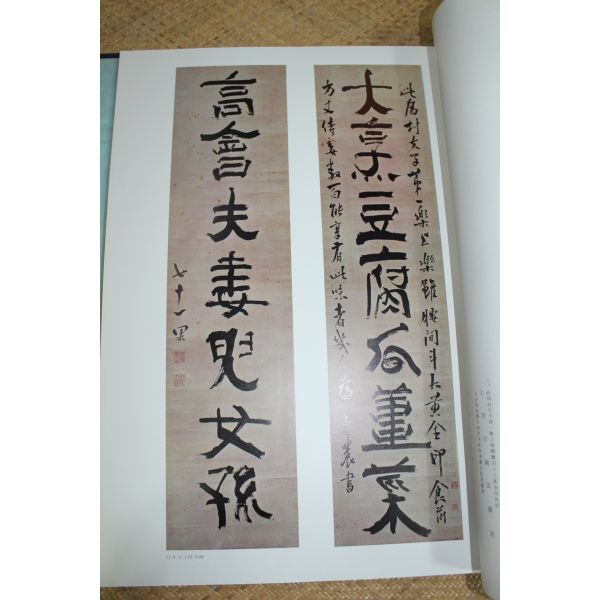 大烹豆腐瓜薑菜
此爲村夫子第一樂上樂雖腰間斗大黃金印食前
方丈侍妾數百能享有此味者幾人爲杏農書
高會夫妻兒女孫
七十一果